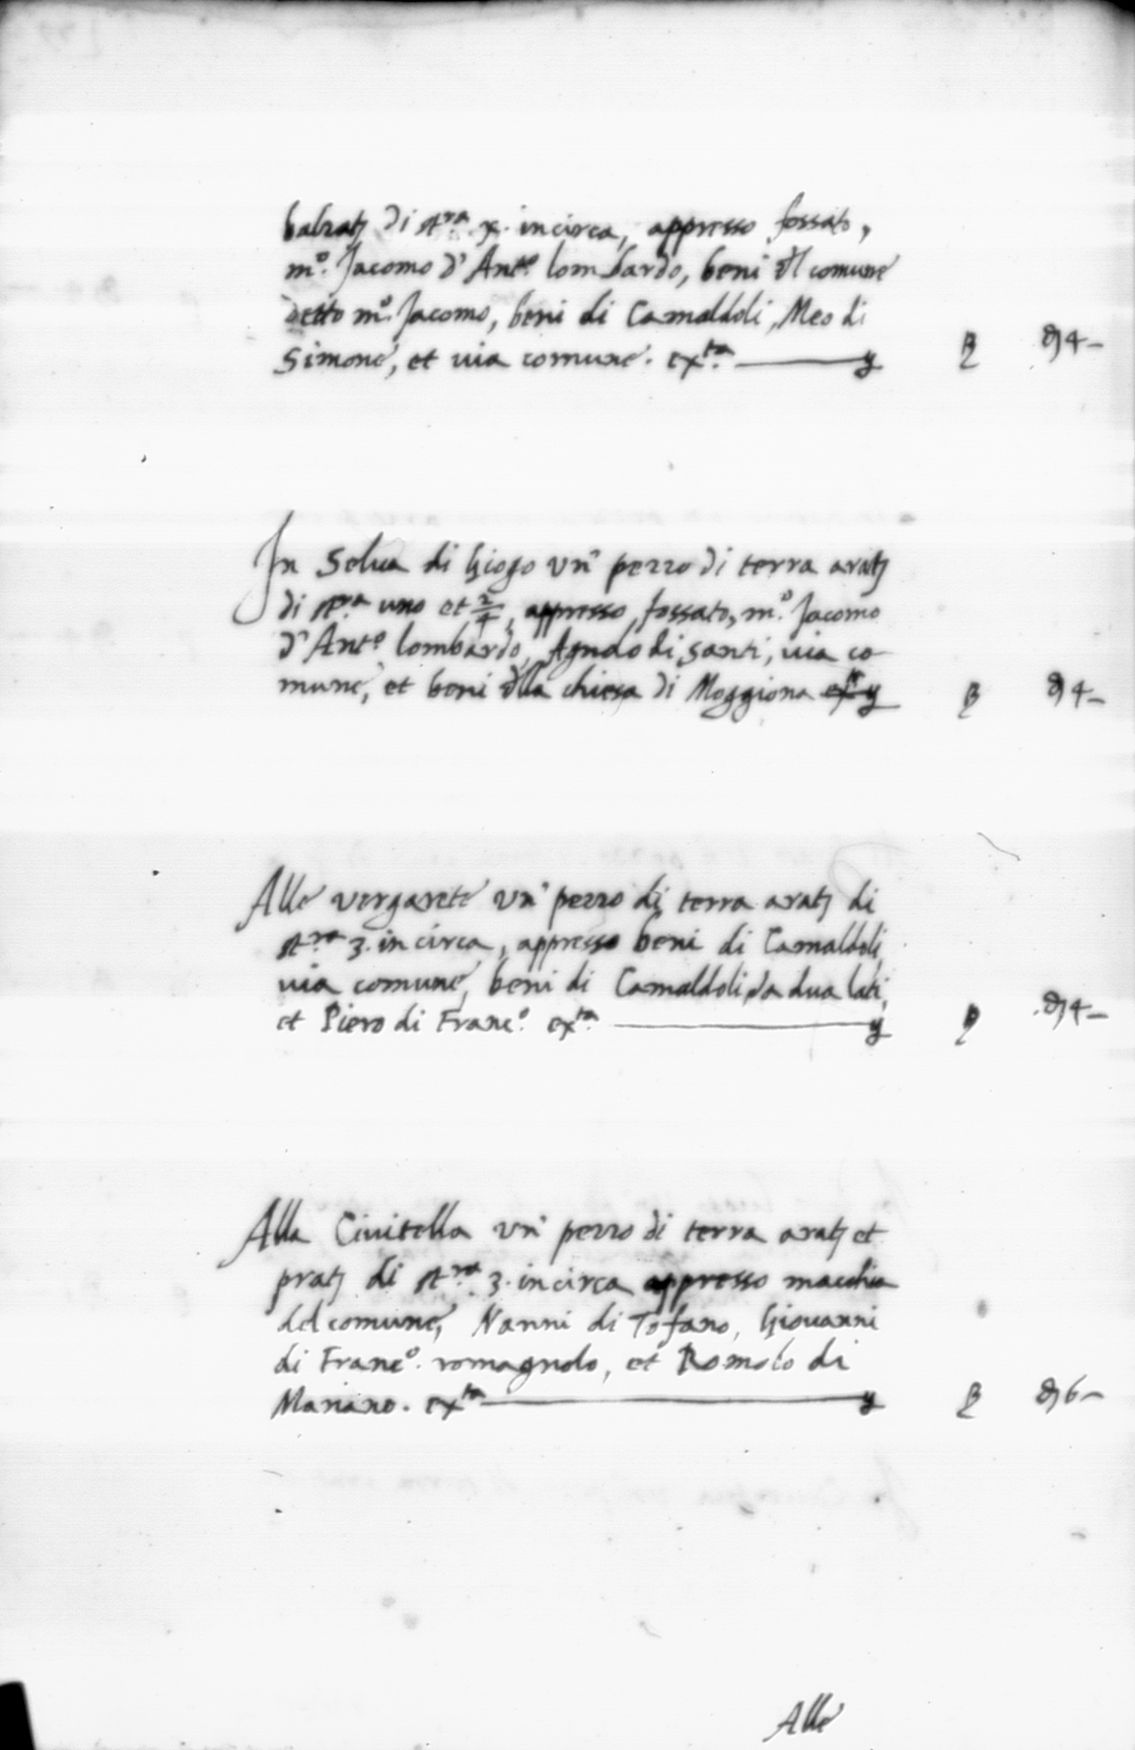 balzatj di st.ra x. incirca, appresso fossato,
m.o Jacomo d'Ant.o lombardo, beni del comune
detto m.o Jacomo, beni di Camaldoli, Meo di
Simone, et via comune. ext.a — y 4 —
In Selva di Giogo un pezzo di terra aratj
di st.ra uno et 2/4, appresso, fossato, m.o Jacomo
d'Ant.o lombardo, Agnolo di santi, via co
mune, et beni della chiesa di Moggiona ext.a y 4 —
Alle vergarete un pezzo di terra aratj di
st.ra 3. in circa, appresso beni di Camaldoli,
via comune, beni di Camaldoli da dua lati,
et Piero di Franc.o ext.a — y 4 —
Alla Civitella un pezzo di terra aratj et
pratj di st.ra 3. incirca appresso macchia
del comune, Nanni di Tofano, Giovanni
di Franc.o romagnolo, et Romolo di
Mariano. ext.a — y 6 —
Alle